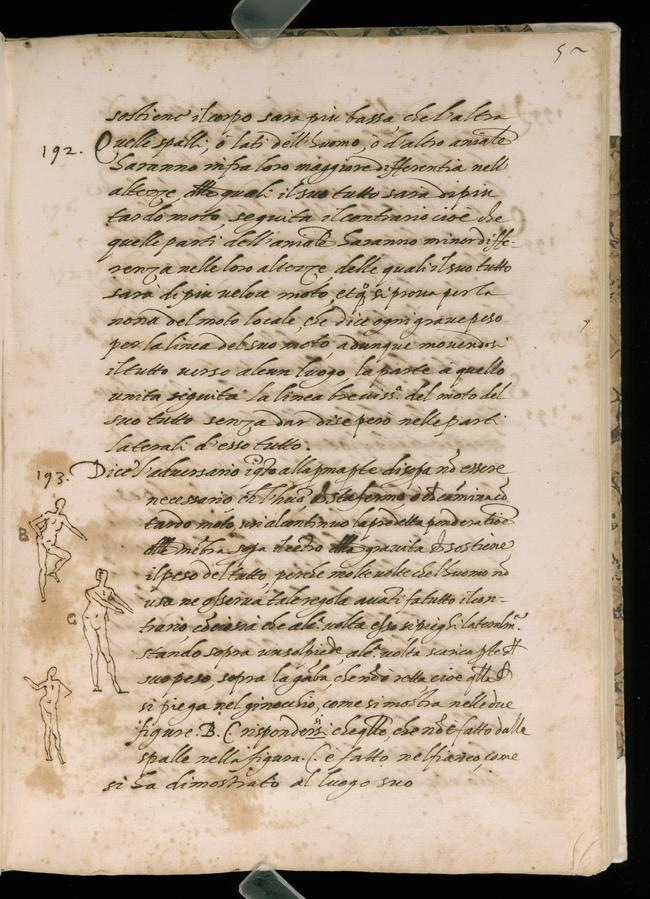 52
sostiene il corpo sara piu bassa che l'altra
192. Quelle spalle, ó lati dell'huomo, ó d'altro animale
haranno infra loro maggiore differentia nell'
altezze delle quali il suo tutto sara di piu
tardo moto, seguita il contrario cioè che
quelle parti dell'animale haranno minor diffe-
renza nelle loro altezze delle quali il suo tutto
sarà di piu veloce moto, et qº si prova per la
nona del moto locale, che dice ogni grave pesa
per la linea del suo moto, adunque movendosi
il tutto verso alcun luogo la parte a quello
unita seguita la linea breviss.ª del moto del
suo tutto senza dar di se peso nelle parti
laterali d'esso tutto.
193. Dice l'adversario iqºto alla pma pte di sopa nō essere
necessario ch l'huō ch sta fermo, o ch camina cō
tardo moto, usi al continuo la predetta ponderatiōe
delle mēbra sopa il cētro della gravita ch sostiene
il peso del tutto, perche molte volte che l'huomo nō
usa ne osserva tale regola avāti fa tutto il con-
trario, cōciosia che alcª volta esso si piega lateralmᵉ
stando sopra un sol piede, alcª volta scarica pte dl
suo peso, sopra la gāba, che nō è retta cioè qlla ch
si piega nel ginocchio, come si mostra nelle due
figure. B. C rispondersi che qllo, che nō è fatto dalle
spalle nella figura. C. è fatto nel fianco, come
si ha dimostrato al luogo suo
B
C